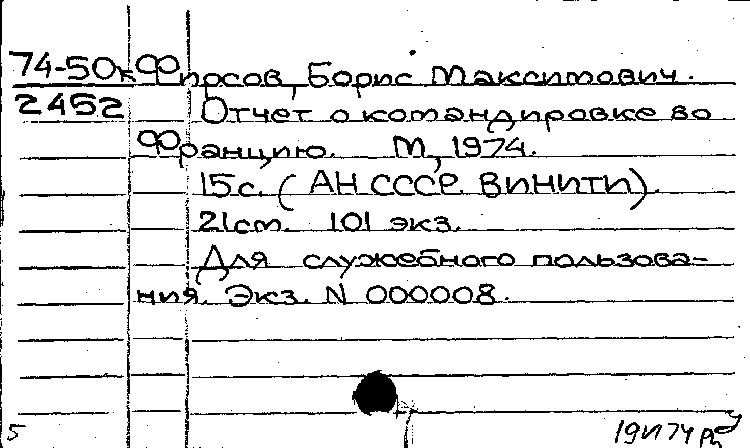 74-50к Фирсов, Борис Максимович.
2452 Отчет о командировке во
Францию. М, 1974.
15с. (АН СССР. ВИНИТИ).
21ст. 101 экз.
Для служебного пользова-
ния. Экз. N 000008.
5